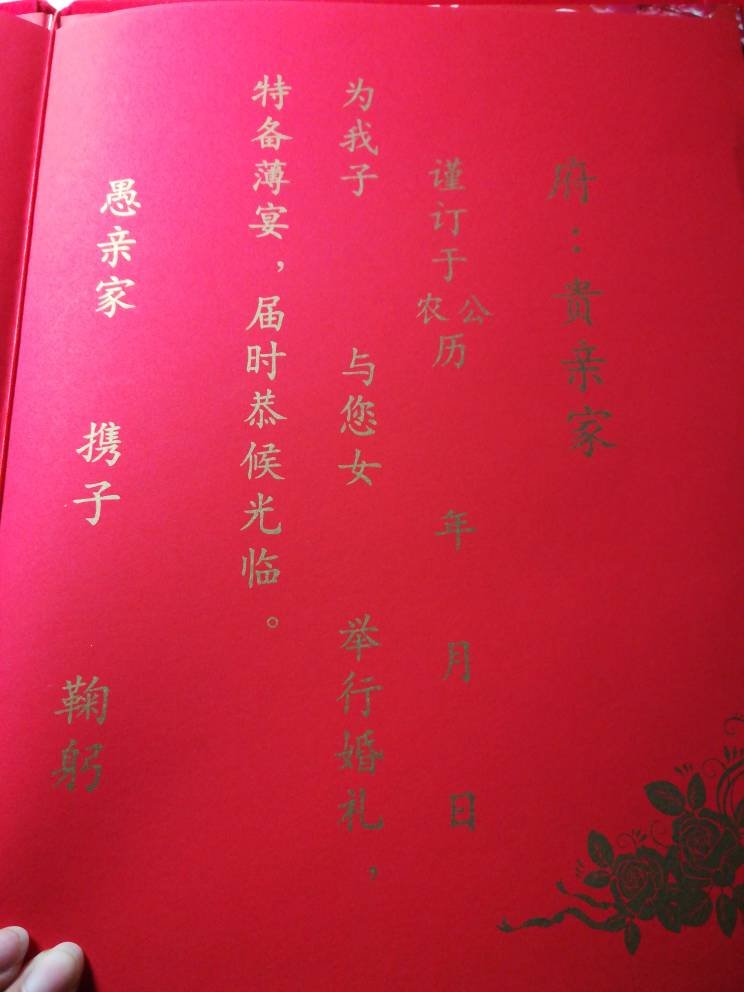 府：贵亲家
谨订于农公历 年 月 日
为我子 与您女 举行婚礼，
特备薄宴，届时恭候光临。
愚亲家 携子 鞠躬